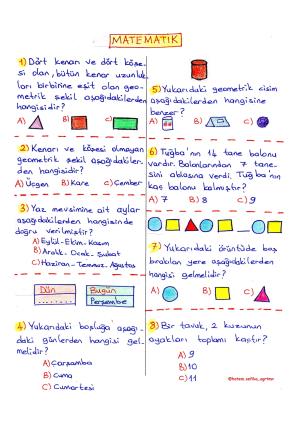 MATEMATİK
1) Dört kenar ve dört köşe-
si olan, bütün kenar uzunluk-
ları birbirine eşit olan geo-
metrik şekil aşağıdakilerden
hangisidir?
A) B) C)
2) Kenarı ve köşesi olmayan
geometrik şekil aşağıdakiler-
den hangisidir?
A) Üçgen B) Kare C) Çember
3) Yaz mevsimine ait aylar
aşağıdakilerden hangisinde
doğru verilmiştir?
A) Eylül-Ekim-Kasım
B) Aralık-Ocak-Şubat
C) Haziran-Temmuz-Ağustos
Dün Bugün
Perşembe
4) Yukarıdaki boşluğa aşağı-
daki günlerden hangisi gel-
melidir?
A) Çarşamba
B) Cuma
C) Cumartesi
5) Yukarıdaki geometrik cisim
aşağıdakilerden hangisine
benzer?
A) B) C)
6) Tuğba'nın 14 tane balonu
vardır. Balonlarından 7 tane-
sini ablasına verdi. Tuğba'nın
kaç balonu kalmıştır?
A) 7 B) 8 C) 9
7) Yukarıdaki örüntüde boş
bırakılan yere aşağıdakilerden
hangisi gelmelidir?
A) B) C)
8) Bir tavuk, 2 kuzunun
ayakları toplamı kaçtır?
A) 9
B) 10
C) 11